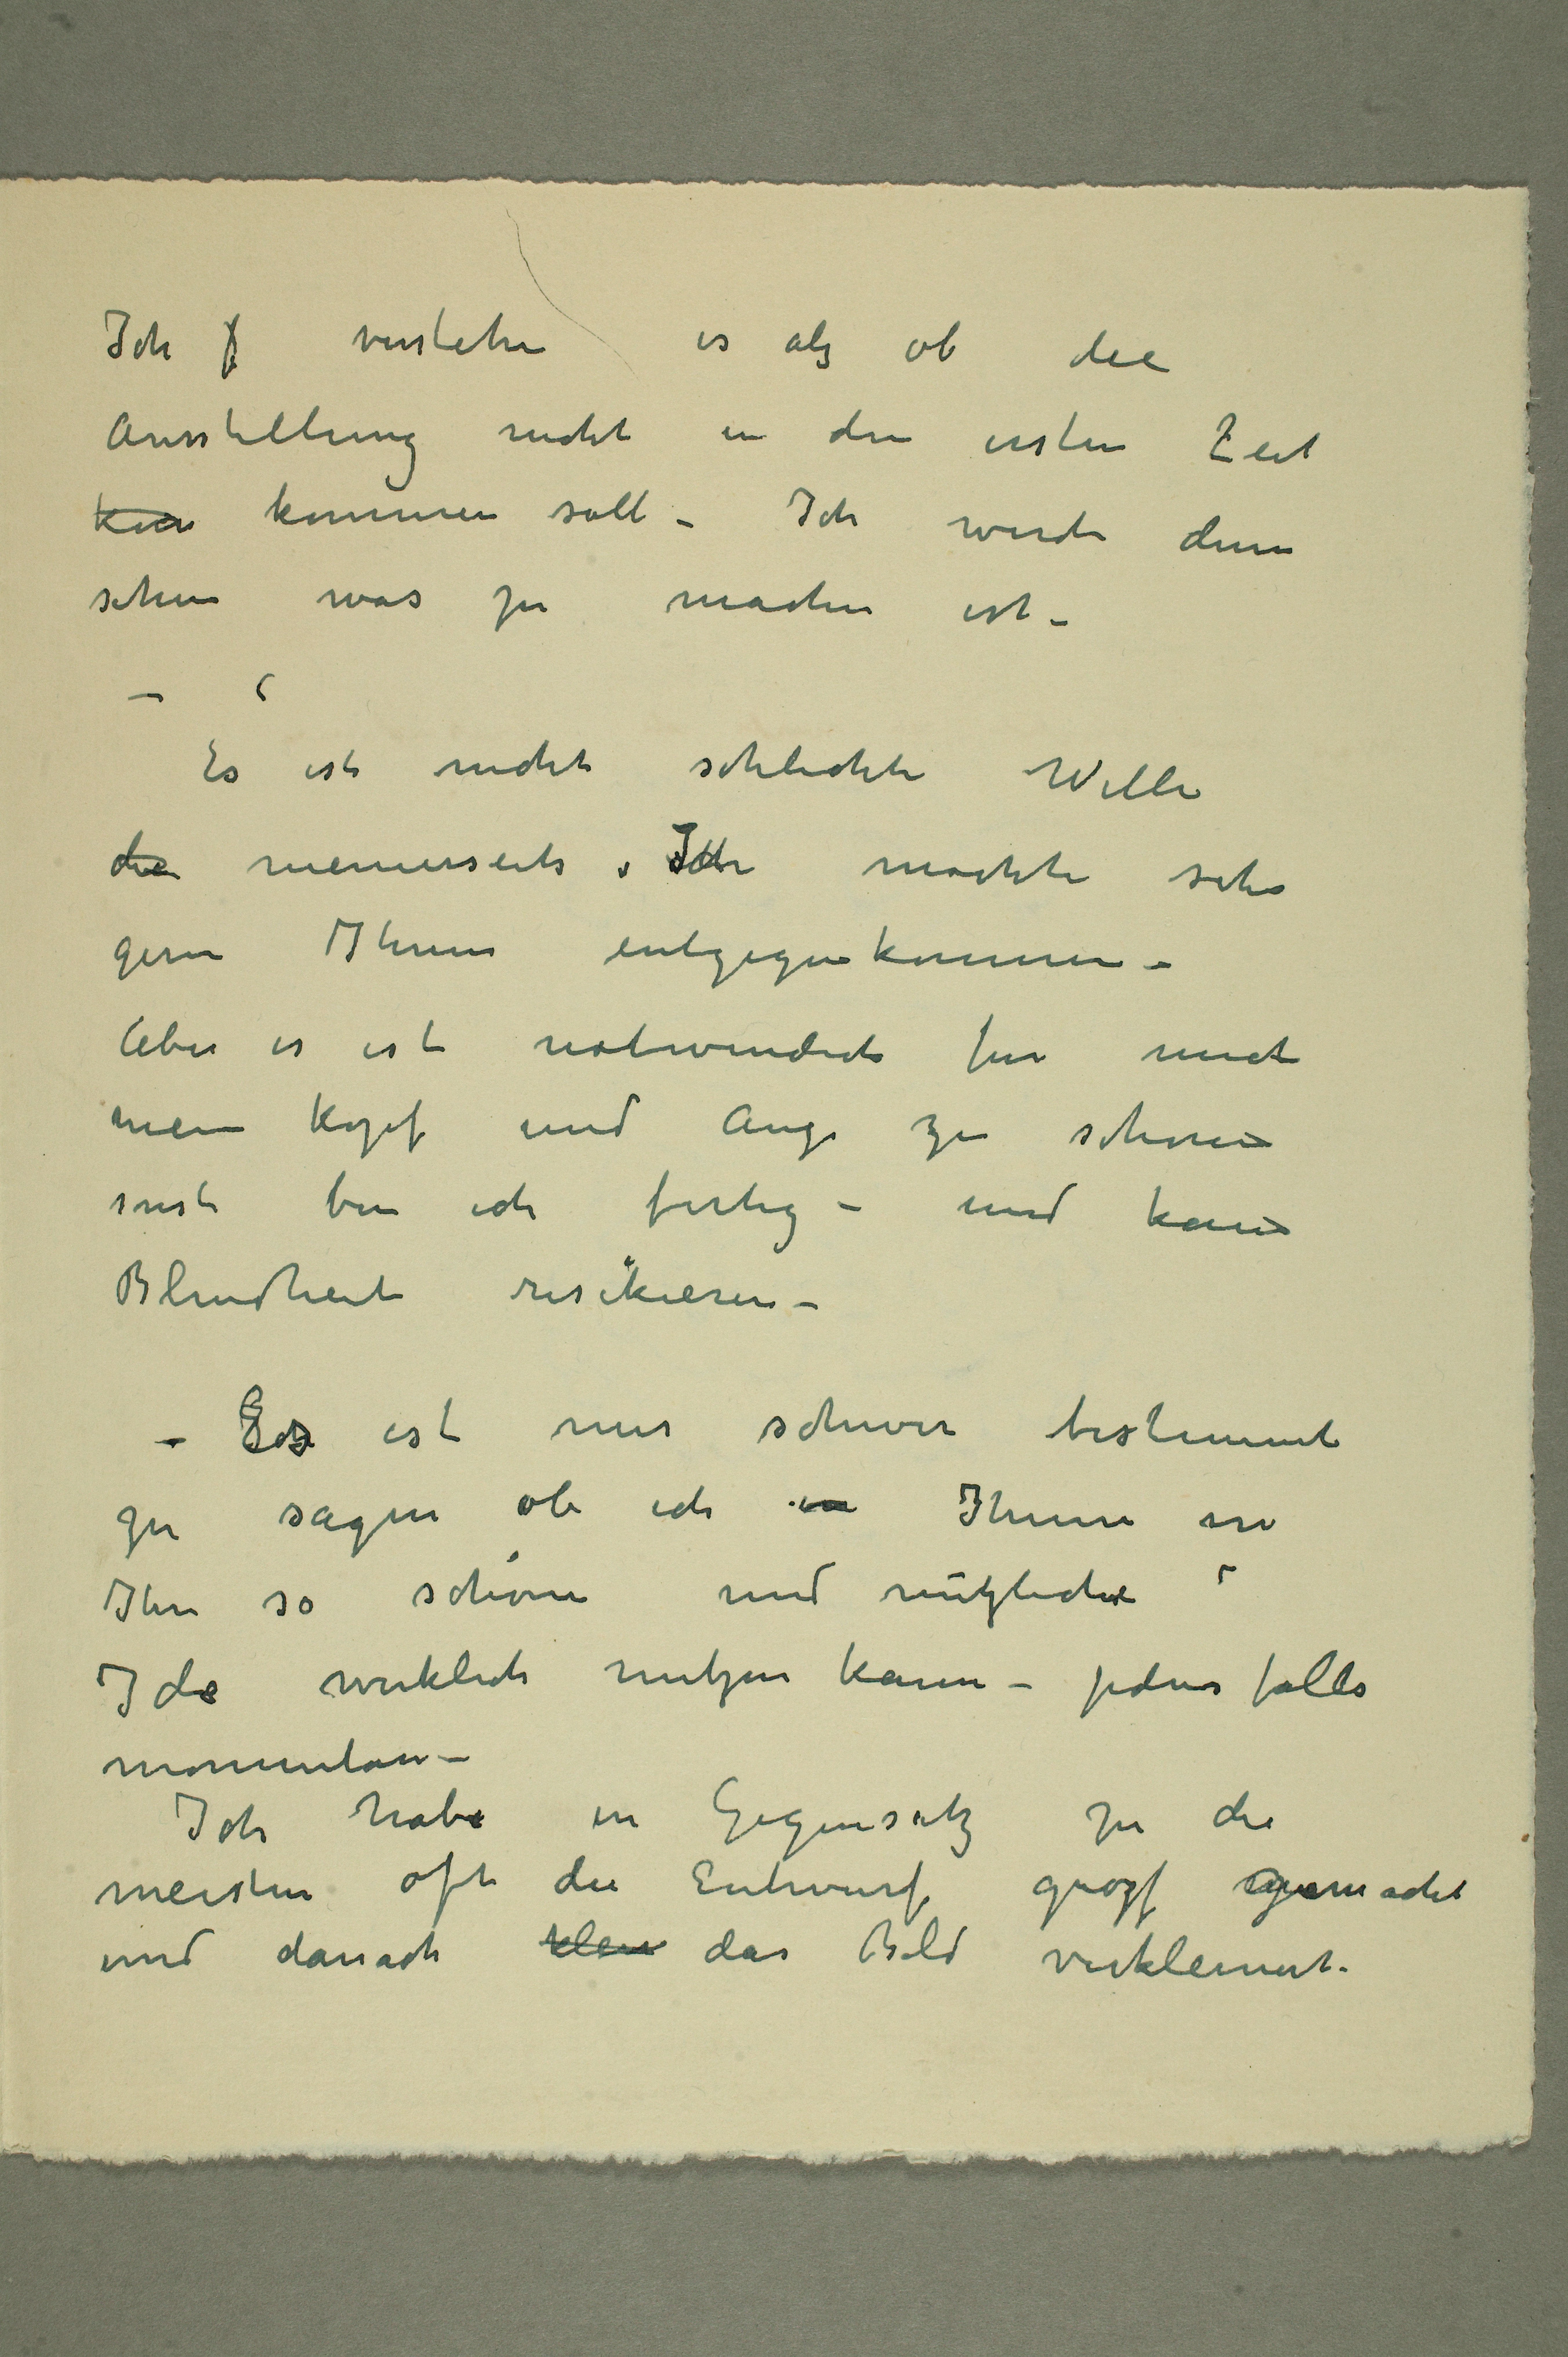 Ich verstehe es als ob die
Ausstellung nicht in den ersten Zeit
kommen soll – Ich werde dann
sehen was zu machen ist –
–
Es ist nicht schlechte Wille
die meinerseits. Ich möchte sehr
gern Ihnen entgegenkommen –
Aber es ist notwendich für mich
mein Kopf und Auge zu schonen
sonst bin ich fertig – und kann
Blindheit risikieren –
– Es ist mir schwer bestimmt
zu sagen ob ich in Ihnen in
Ihre so schöne und nützliche
Ide wirklich nutzen kann – jedens falls
momentan –
Ich habe in Gegensatz zu die
meisten oft die Entwurf grozf gemacht
und danach klein das Bild verkleinert.